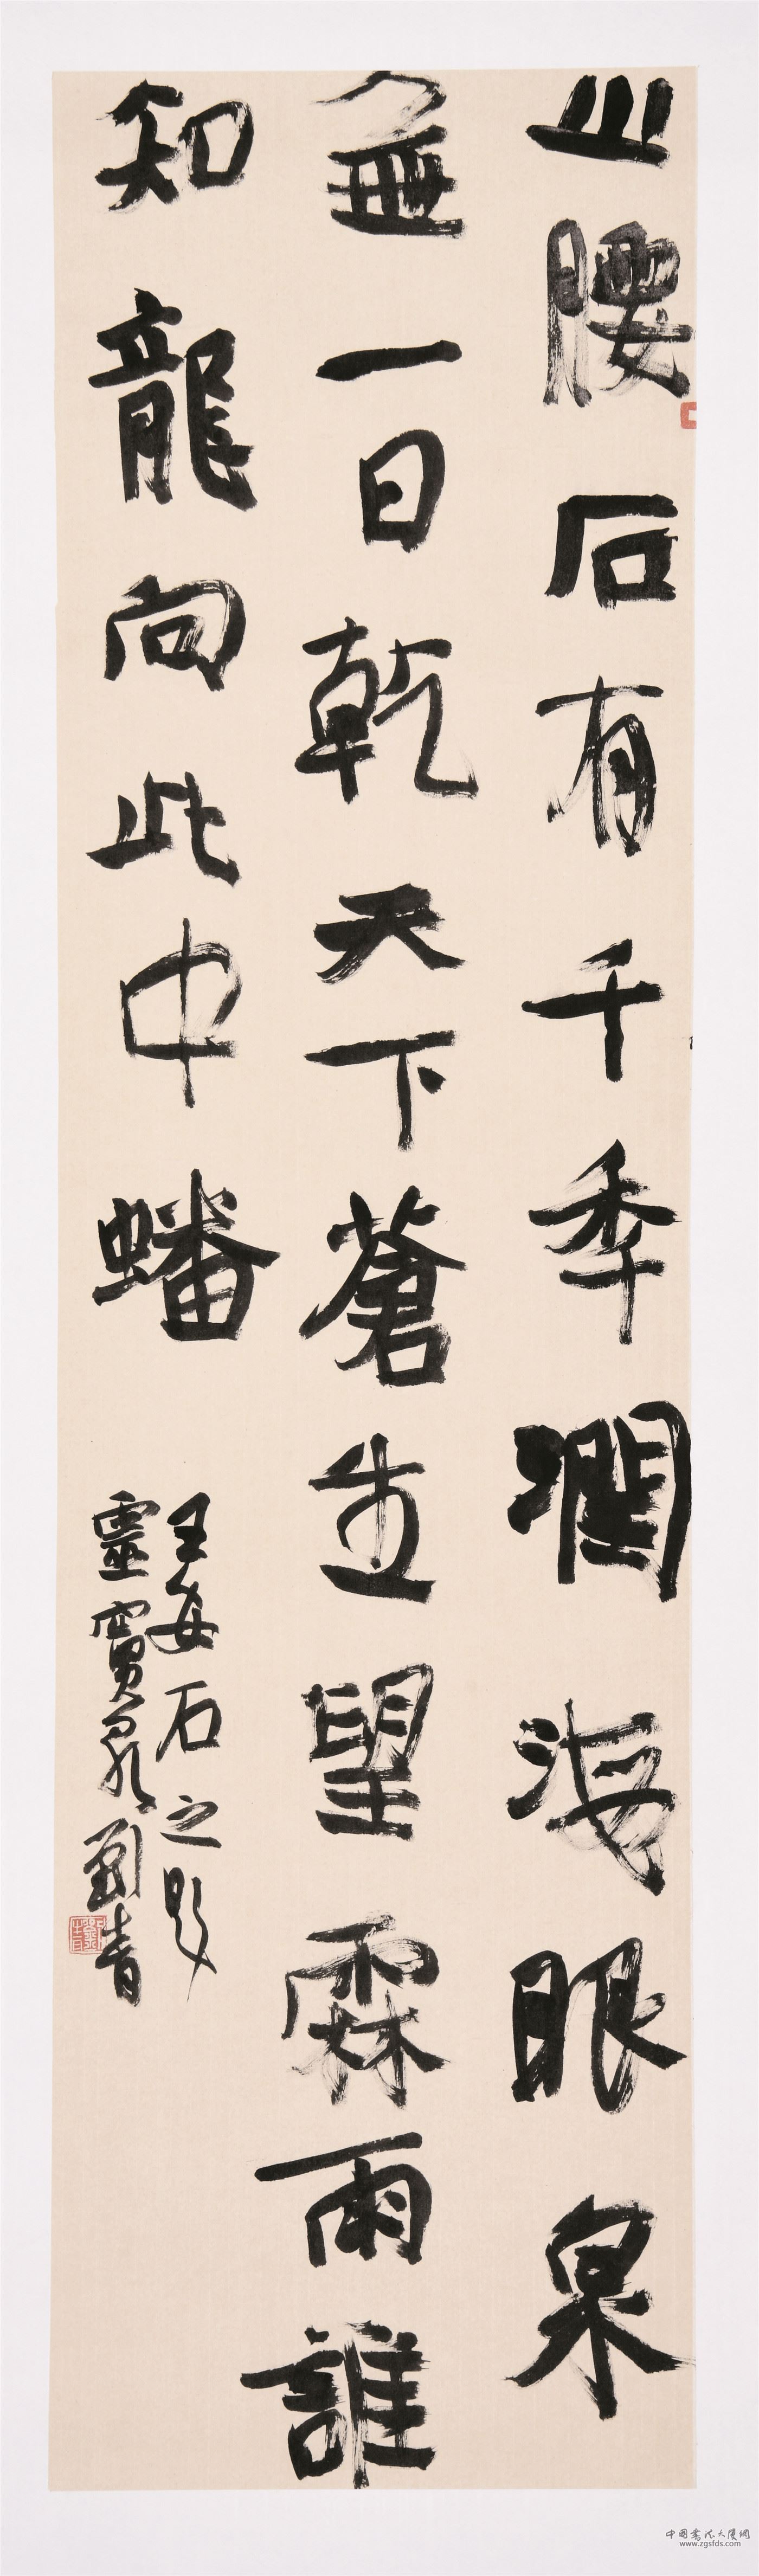 山腰石有千秊潤海眼泉
無一日乾天下蒼生望霖雨誰
知龍向此中蟠
王安石之題
靈寶劉青
中國書法大厦網
www.zgsfds.com